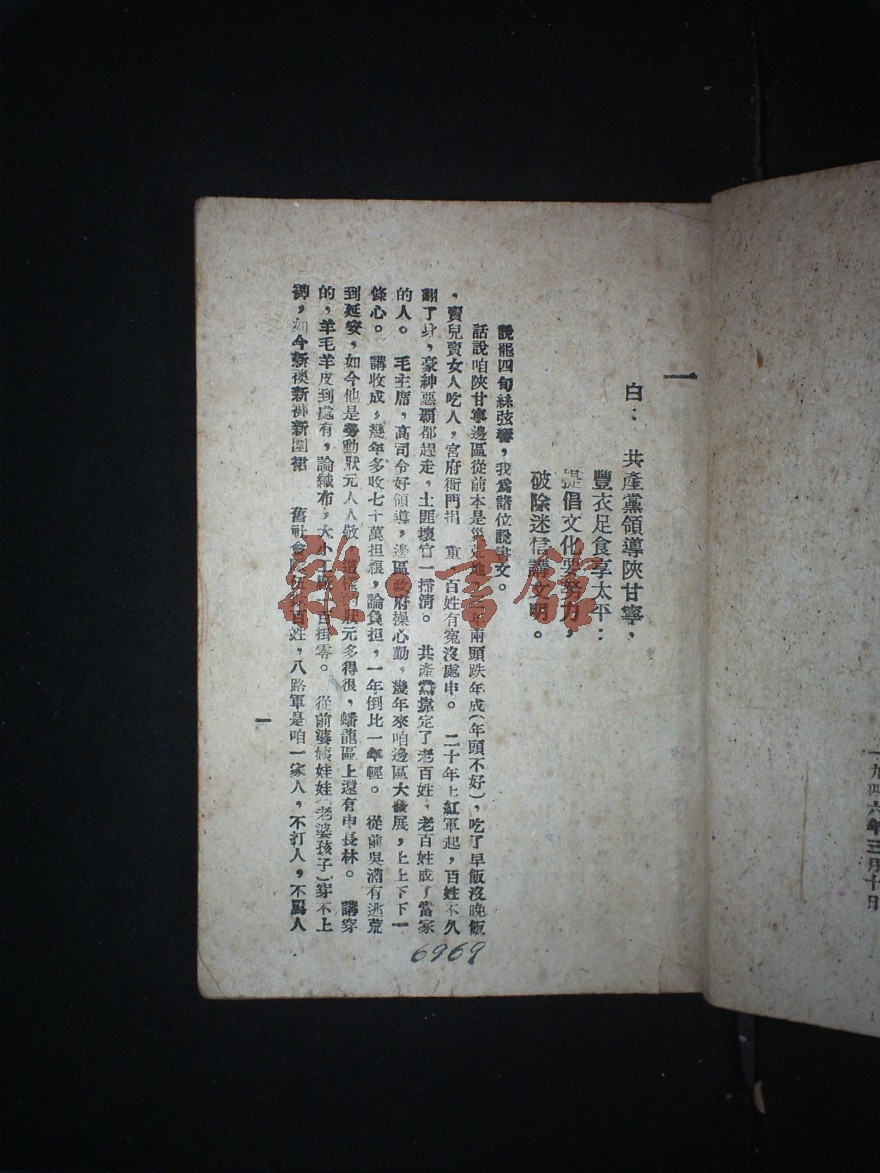 一九四六年三月十日
一
白：共產黨領導陝甘寧，
豐衣足食享太平：
提倡文化要努力，
破除迷信講文明。
說罷四句絲弦響，我為諸位說書文。
話說咱陝甘寧邊區從前本是災荒地，年兩頭跌年成(年頭不好)，吃了早飯沒晚飯
，賣兒賣女人吃人，官府衙門捐 重，百姓有冤沒處申。 二十年上紅軍起，百姓不久
翻了身，豪紳惡霸都趕走，土匪壞官一掃清。 共產黨靠定了老百姓，老百姓成了當家
的人。 毛主席，高司令好領導，邊區政府操心勤，幾年來咱邊區大發展，上上下下一
條心。 講收成，幾年多收七十萬担糧，論負担，一年倒比一年輕。 從前吳滿有逃荒
到延安，如今他是勞動狀元人人敬，這樣的狀元多得很，蟠龍區上還有申長林。 講穿
的，羊毛羊皮到處有，論織布，大小工廠一百掛零。 從前婆姨娃娃(老婆孩子)穿不上
褲，如今新襖新褲新圍裙 舊社會隊伍 百姓，八路軍是咱一家人，不打人，不罵人
一
6969
雜·書館